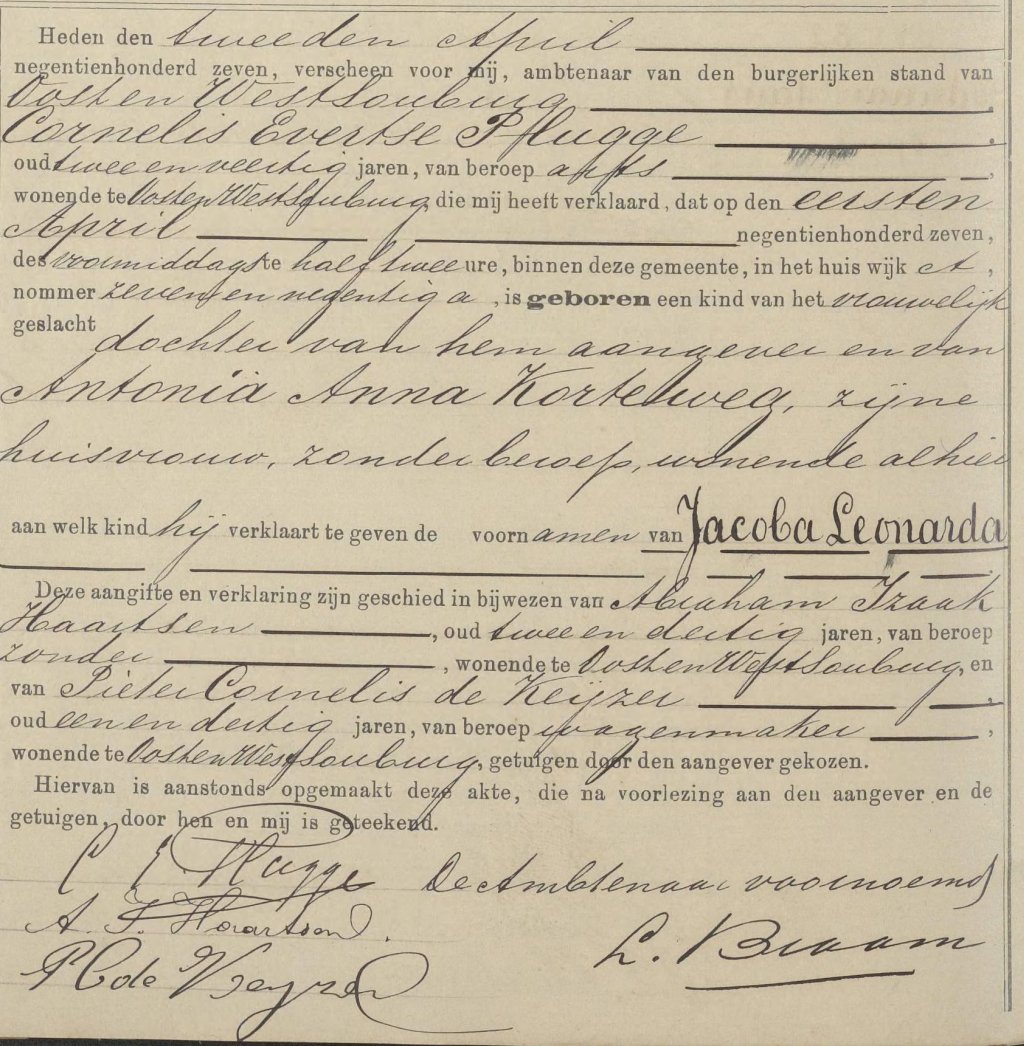 Heden den tweeden April
negentienhonderd zeven, verscheen voor mij, ambtenaar van den burgerlijken stand van
Oost en West Souburg
Cornelis Evertse Pflugge
oud twee en veertig jaren, van beroep arts
wonende te Oost en West Souburg, die mij heeft verklaard, dat op den eersten
April negentienhonderd zeven,
des voormiddags te half twee ure, binnen deze gemeente, in het huis wijk A,
nommer zeven en negentig a, is geboren een kind van het vrouwelijk
geslacht dochter van hem aangever en van
Antonia Anna Korteweg, zijne
huisvrouw, zonder beroep, wonende alhier
aan welk kind hij verklaart te geven de voornamen van Jacoba Leonarda
Deze aangifte en verklaring zijn geschied in bijwezen van Abraham Izaak
Haartsen, oud twee en dertig jaren, van beroep
zonder, wonende te Oost en West Souburg, en
van Pieter Cornelis de Keijzer
oud een en dertig jaren, van beroep wagenmaker,
wonende te Oost en West Souburg, getuigen door den aangever gekozen.
Hiervan is aanstonds opgemaakt deze akte, die na voorlezing aan den aangever en de
getuigen, door hen en mij is geteekend.
C E Pflugge De Ambtenaar voornoemd
A. I. Haartsen.
L. Braam
P C de Keyzer